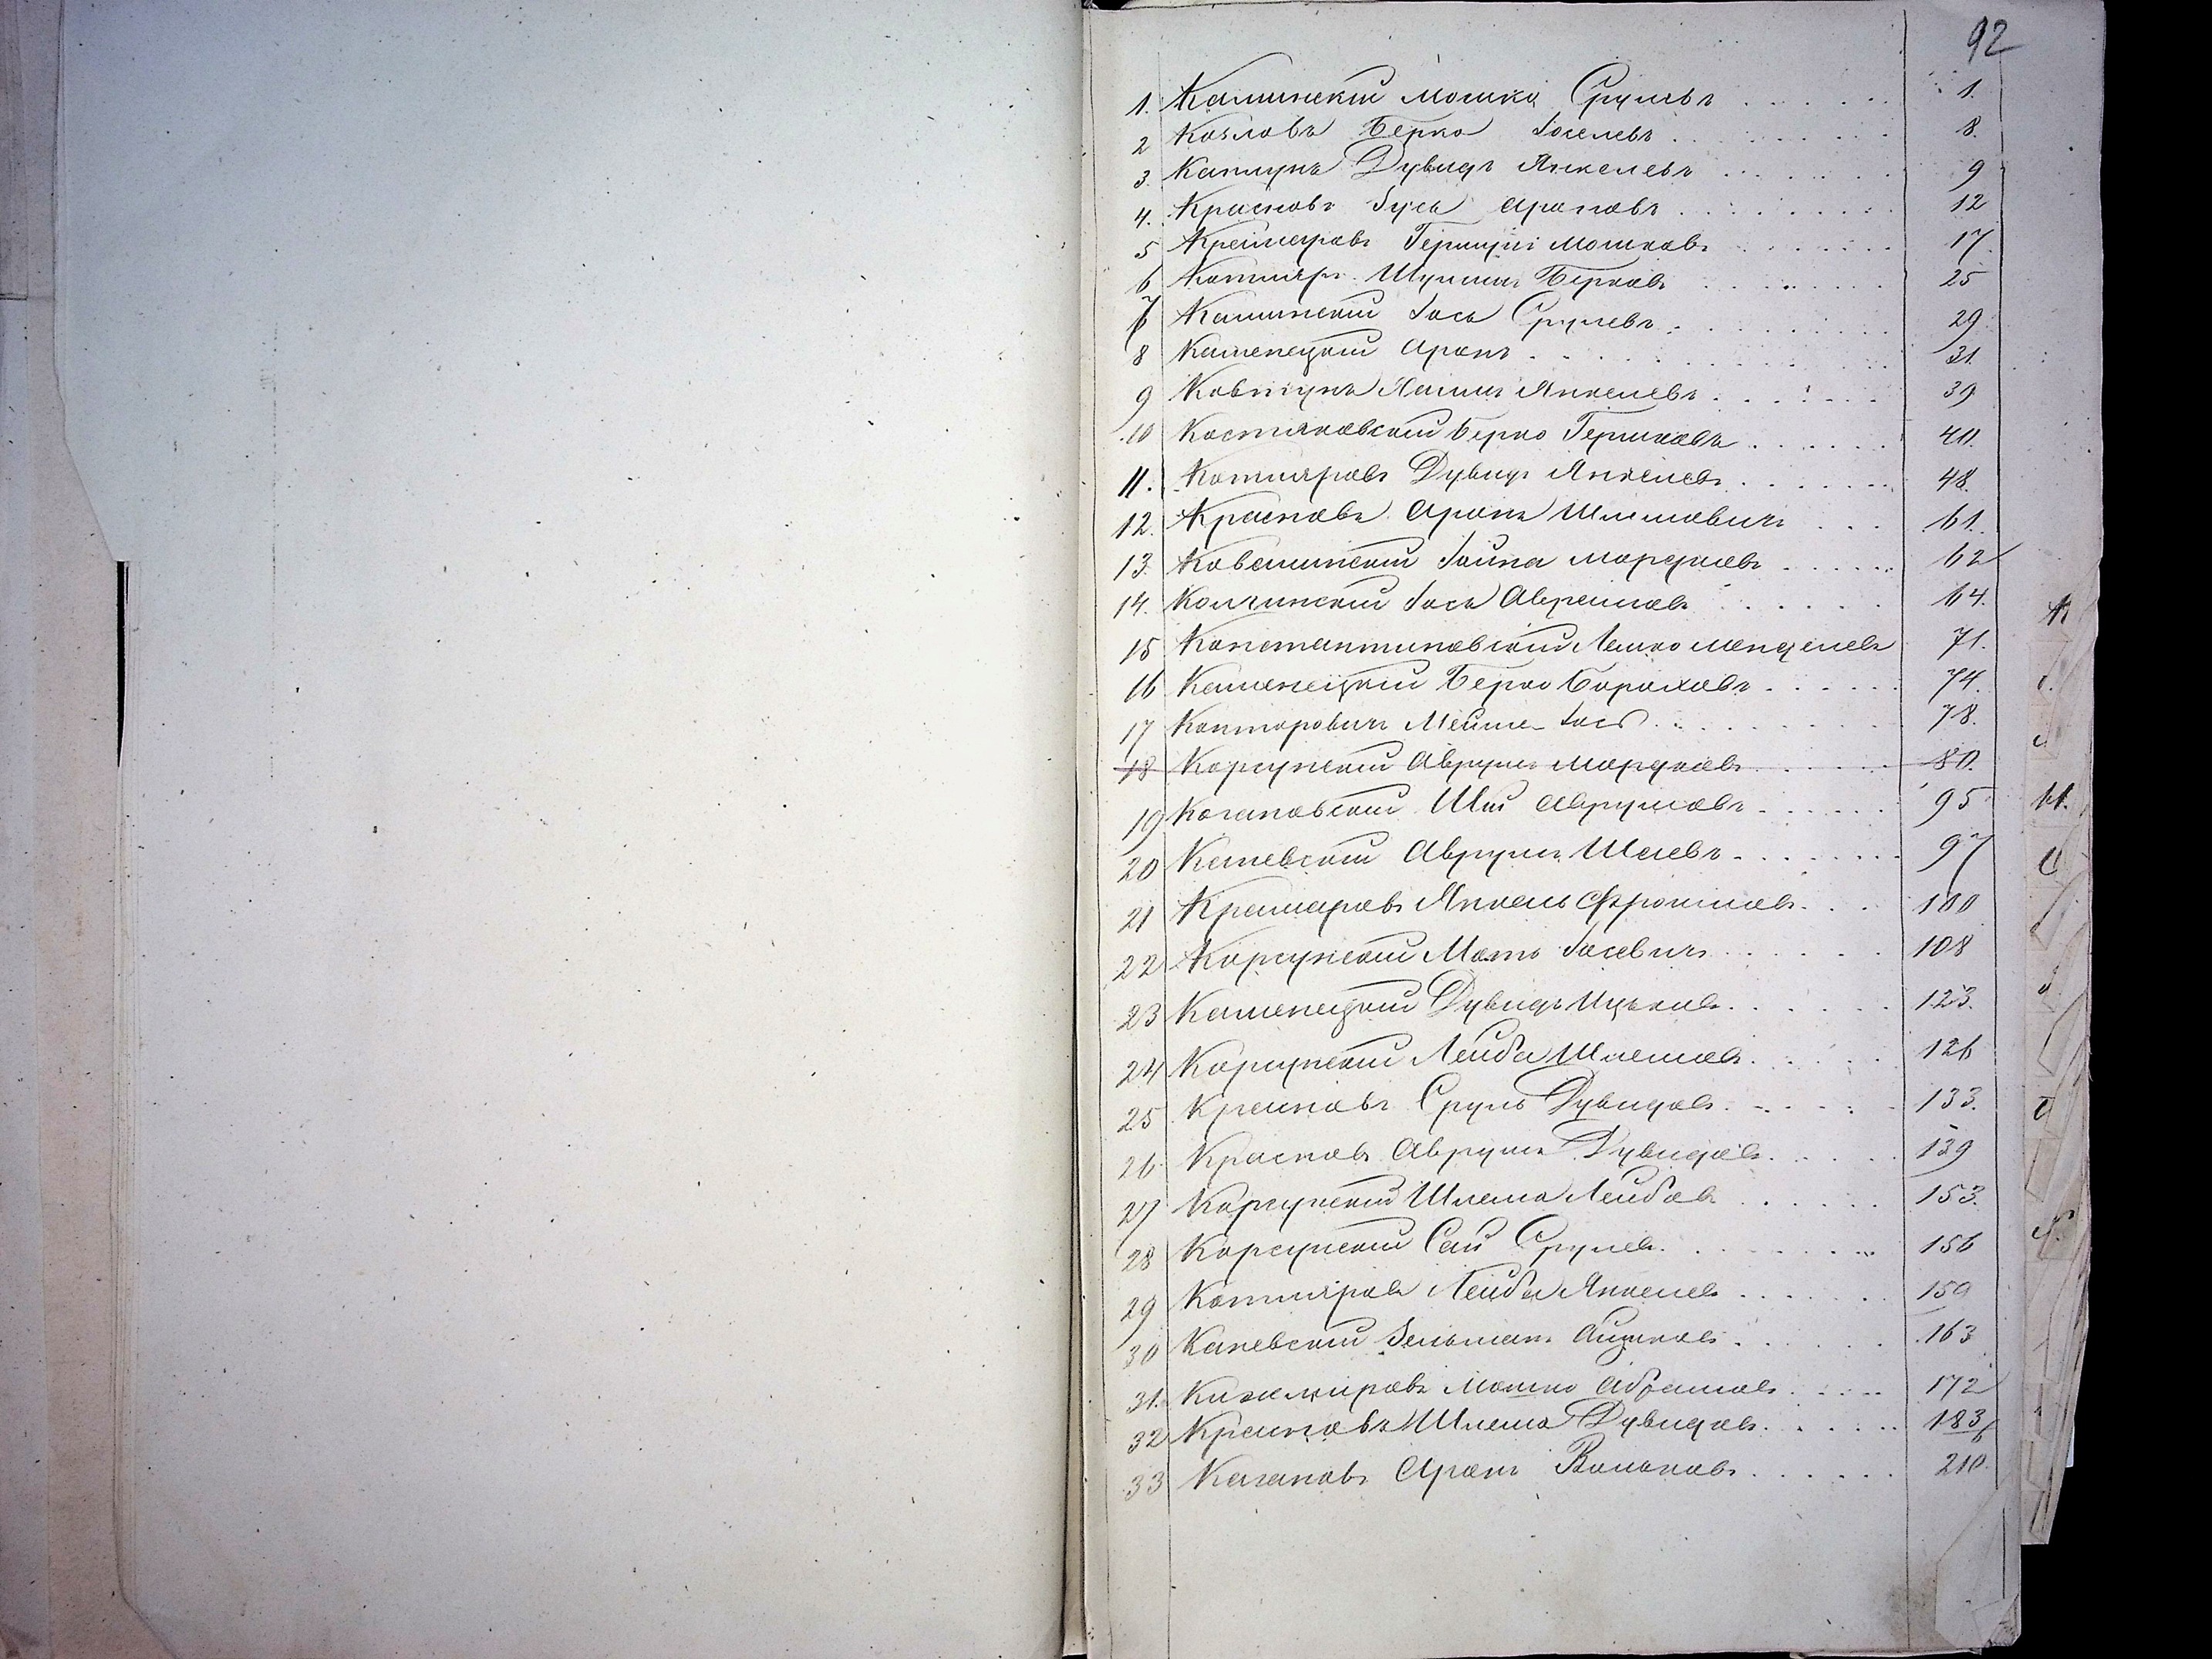 92
1. Калинскій Мошко Срулевъ 1.
2 Козловъ Берко Іоселевъ 8.
3. Каплунъ Дувидъ Янкелевъ 9
4. Красновъ Зусь Ароновъ 12
5 Крамаровъ Гершко Мошковъ 17.
6 Котляръ Шулимъ Берковъ 25
7 Калинскій Іось Срулевъ 29
8 Каменецкій Аронъ 31.
9 Ковтунъ Хаимъ Янкелевъ 39
10 Костяновскій Берко Гершковъ 40.
11. Котляровъ Дувидъ Янкелевъ 48.
12. Красновъ Аронъ Шлиомовичъ 61.
13. Ковалинскій Іойна Мордковъ 62
14. Колчинскій Іось Авремовъ 64.
15 Константиновскій Лейко Менделевъ 71.
16 Каменецкій Берко Бороховъ 74.
17 Канторовичъ Мейше-Іось 78.
18 Корсунскій Аврумъ Мордковъ 80.
19 Когановскій Шая Аврумовъ 95
20 Каневскій Аврумъ Шаевъ 97
21 Крамаровъ Янкель Фроимовъ 100
22 Корсунскій Мотъ Іосевичъ 108
23 Каменецкій Дувидъ Ицьковъ 123.
24 Корсунскій Лейба Шлемовъ 126
25 Красновъ Сруль Дувидовъ 133.
26 Красновъ Аврумъ Дувидовъ 139
27 Корсунскій Шлема Лейбовъ 153.
28 Корсунскій Сай Срулевъ 156
29 Котляровъ Лейба Янкелевъ 159
30 Каневскій Зельманъ Айзиковъ 163
31. Кижнировъ Мошко Абрамовъ 172
32 Красновъ Шлема Дувидовъ 183
33 Кагановъ Аронъ Вольковъ 210.